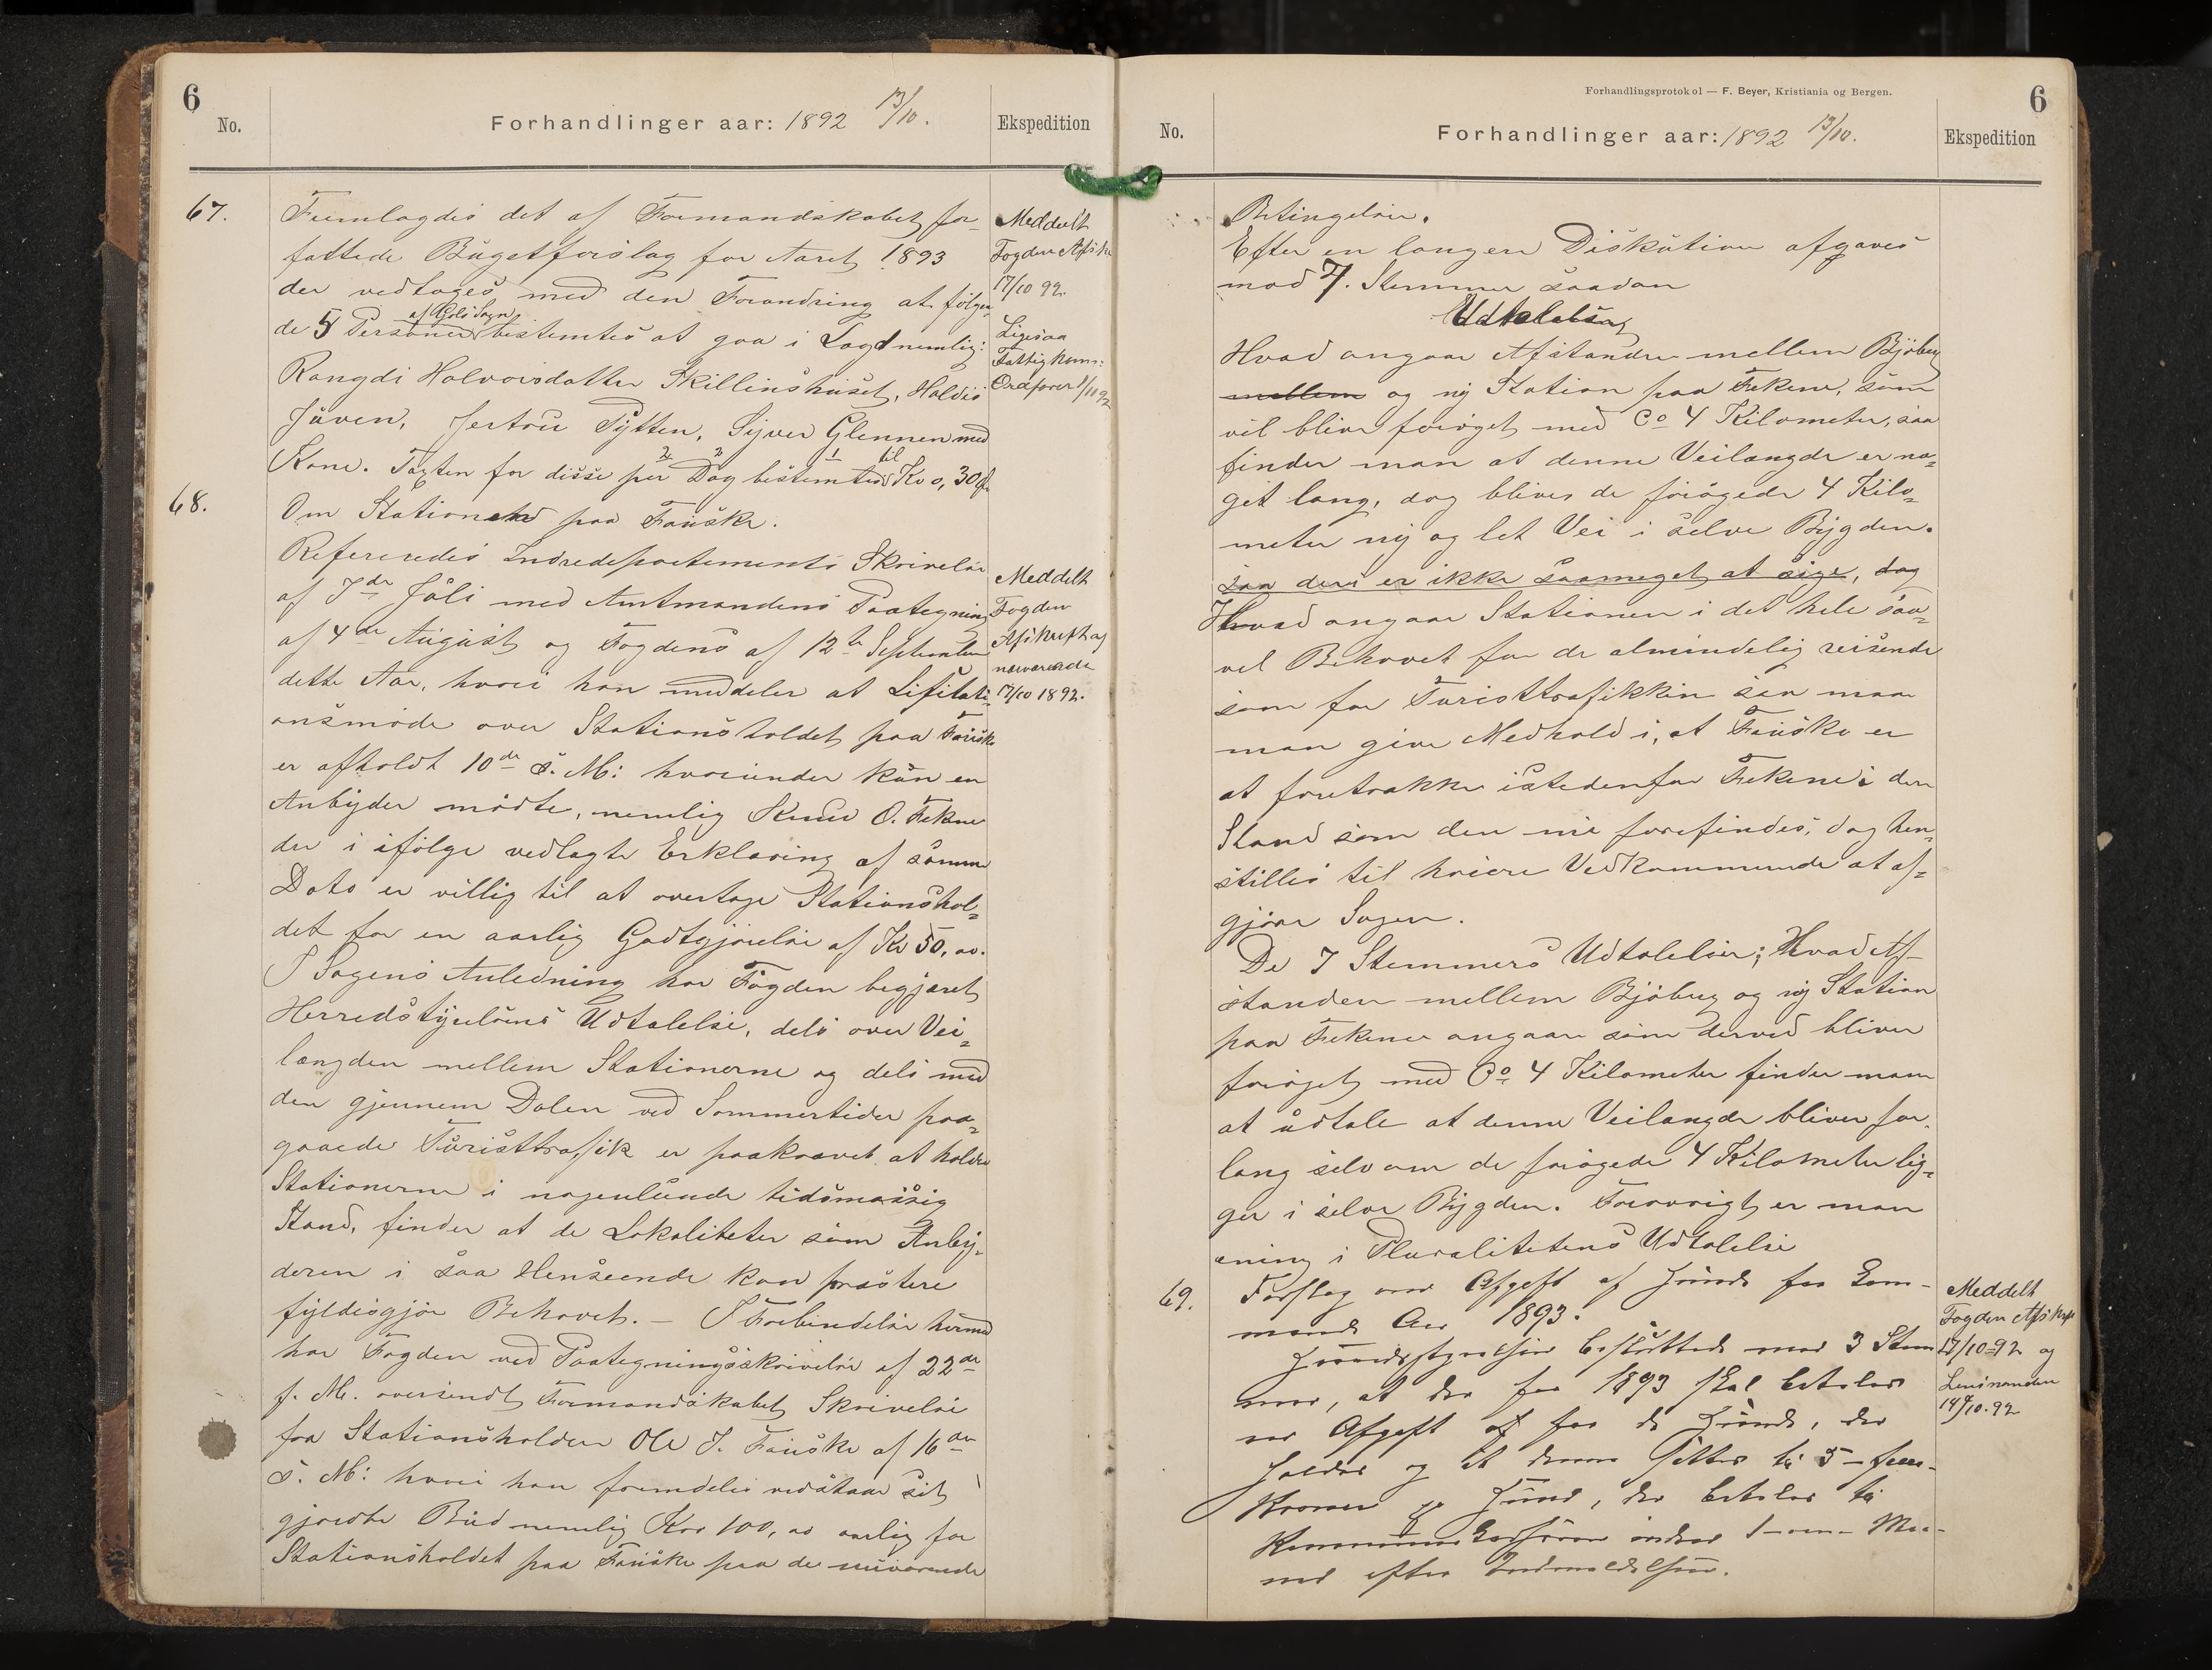 6
No.
Forhandlinger aar: 1892 13/10.
Ekspedition
67.
Fremlagdes det af Formandskabet for-
fattede Bugetforslag for Aaret 1893
der vedtoges med den Forandring at følgen-
af Gols Sogn
de 5 Personer bestemtes at gaa i Lægd nemlig:
Rangdi Halvorsdatter Skillinshuset, Haldis
Jüven, Jertru Pytten, Syver Glennen med
Kone. Taxten for disse per Dag bestemtes til Kr 0,30
Meddelt
Fogden Afskr
17/10 92.
Ligesaa
Fattigkom:
Ordfører
68.
Om Stationen paa Fauske.
Refereredes Indredepartements Skrivelse
af 7de Juli med Amtmandens Paategning
af 4de August og Fogdens af 12te September
dette Aar, hvori han meddeler at Lisitati-
onsmøde over Stationsholdet paa Fauske
er afholdt 10de s. M: hvorunder kun en
Anbyder mødte, nemlig Knud O. Fekene
der i ifølge vedlagte Erklæring af samme
Dato er villig til at overtage Stationshol-
det for en aarlig Godtgjørelse af Kr 50,00.
I Sagens Anledning har Fogden begjæret
Herredstyrelsens Udtalelse, dels over Vei-
længden mellem Stationerne og dels med
den gjennem Dalen ved Sommertider paa-
gaaede Turisttrafik er paakrævet at holde
Stationerne i nogenlunde tidsmæssig
Stand, finder at de Lokaliteter som Anby-
deren i saa Henseende kan præstere
fyldesgjør Behovet. – I Forbindelse hermed
har Fogden ved Paategningsskrivelse af 22de
f. M. oversendt Formandskabet Skrivelse
fra Stationsholder Ole J. Fauske af 16de
s. M: hvori han fremdeles vedstaar sit
gjordte Bud nemlig Kro 100,00 aarlig for
Stationsholdet paa Fauske paa de nuværende
Meddelt
Fogden
Afskrift af
nærværende
17/10 1892.
Forhandlingsprotokol — F. Beyer, Kristiania og Bergen.
6
No.
Forhandlinger aar: 1892 13/10.
Ekspedition
Betingelser.
Efter en længere Diskution afgaves
mod 7. Stemmer saadan
Udtalelse
Hvad angaar Afstanden mellem Bjøberg
mellem og ny Station paa Fekene, som
vil blive forøget med Co 4 Kilometer, saa
finder man at denne Veilængde er no-
get lang, dog bliver de forøgede 4 Kilo-
meter ny og let Vei i selve Bygden.
saa der er ikke saameget at sige, dog
Hvad angaar Stationen i det hele saa-
vel Behovet for de almindelig reisende
som for Turisttrafikken saa maa
man give Medhold i, at Fauske er
at foretrække istedenfor Fekene i den
Stand som den nu forefindes, dog hen-
stilles til høiere Vedkommende at af-
gjøre Sagen.
De 7 Stemmers Udtalelser; Hvad Af-
standen mellem Bjøberg og ny Station
paa Fekene angaar som derved bliver
forøget med Co 4 Kilometer finder man
at udtale at denne Veilængde bliver for
lang selv om de forøgede 4 Kilometer lig-
ger i selve Bygden. Forøvrigt er man
ening i Pluralitetens Udtalelse
69.
Forslag over Afgift af Hunde for Kom-
mende Aar 1893.
Herredsstyrelsen besluttede mod 3 Stem-
mer, at der for 1893 skal betales
en Afgift af for de Hunde, der
holdes og at denne sættes til 5 – fem –
Kroner pr Hund, der betales til
Kommunekassereren inden 1 – en – Maa-
ned efter Indmeldelsen.
Meddelt
Fogden Afskrift
17/10-92 og
Lensmanden
14/10.92